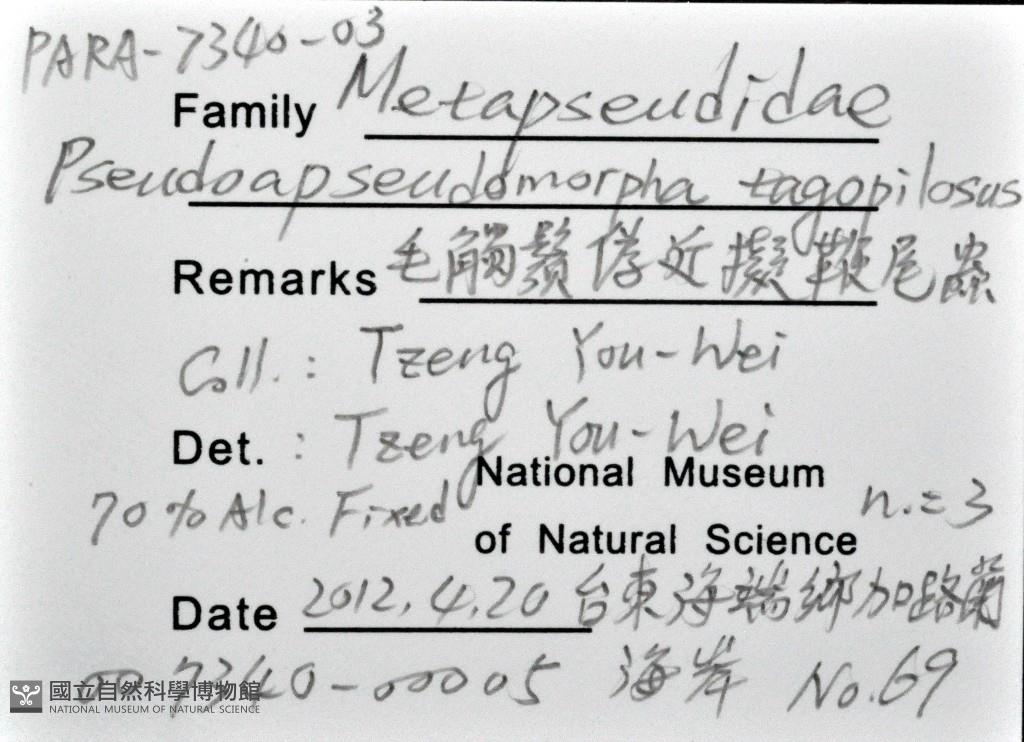 PARA-7340-03
Family Metapseudidae
Pseudoapseudomorpha tagopilosus
Remarks 毛觸鬚 近擬鞭尾蟲
Coll. : Tzeng You-Wei
Det. : Tzeng You-Wei
70% Alc. Fixed
National Museum
of Natural Science
n.=3
Date 2012.4.20 台東海端鄉加路蘭
7340-00005 海岸 No.69
國立自然科學博物館
NATIONAL MUSEUM OF NATURAL SCIENCE